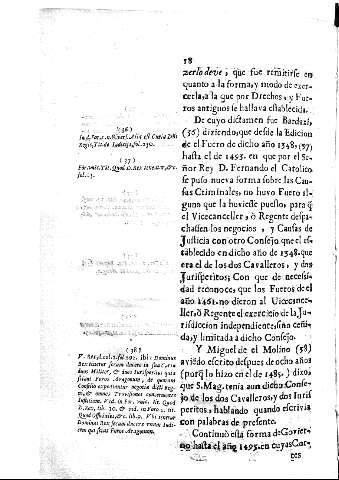 18
zerlo deve; que fue remitirse en
quanto a la forma, y modo de exer-
cerla, a la que por Drechos, y Fue-
ros antiguos se hallava establecida.
De cuyo dictamen fue Bardaxi,
(36) diziendo, que desde la Edicion
de el Fuero de dicho año 1348, (37)
hasta el de 1493. en que por el Se-
ñor Rey D. Fernando el Catolico
se puso nueva forma sobre las Cau-
sas Criminales, no huvo Fuero al-
guno que la huviesse puesto, para q̃
el Vicecanceller, ò Regente despa-
chassen los negocios, y Causas de
Justicia con otro Consejo que el es-
tablecido en dicho año de 1348. que
era el de los dos Cavalleros, y dos
Jurisperitos; Con que de necessi-
dad reconoce, que los Fueros de el
año 1461. no dieron al Vicecance-
ller, ò Regente el exercicio de la Ju-
risdiccion independiente, sino ceñi-
da, y limitada a dicho Consejo.
Y Miguel de el Molino (38)
aviedo escrito despues de ocho años
(porq̃ lo hizo en el de 1485.) dixo,
que S. Mag. tenia aun dicho Conse-
jo de los dos Cavalleros, y dos Juris
peritos, hablando quando escrivia
con palabras de presente.
Continuòse esta forma de Govier-
no hasta el año 1493. en cuyas Cor-
tes
(36)
Regis, Tit. de fol. 250.
(37)
Foro unic. Tit. Quod D. Rex
fol. 15.
(38)
V. Rex, fol. 292. ibi: Dominus
Rex tenetur secum ducere in sua Curia
duos Milites, & duos Jurisperitos qui
sciant Foros Aragonum, de quorum
Consilio expediantur negotia dicti Reg-
ni, & omnes Provisiones concernentes
Justitiam. Vid. in For. unic. tit. Quod
D. Rex, lib. 10. & vid. in Foro 1. tit.
Quod Officiales, & c. lib. 9. Vbi tenetur
Dominus Rex secum ducere unum Judi-
cem qui sciat Foros Aragonum.